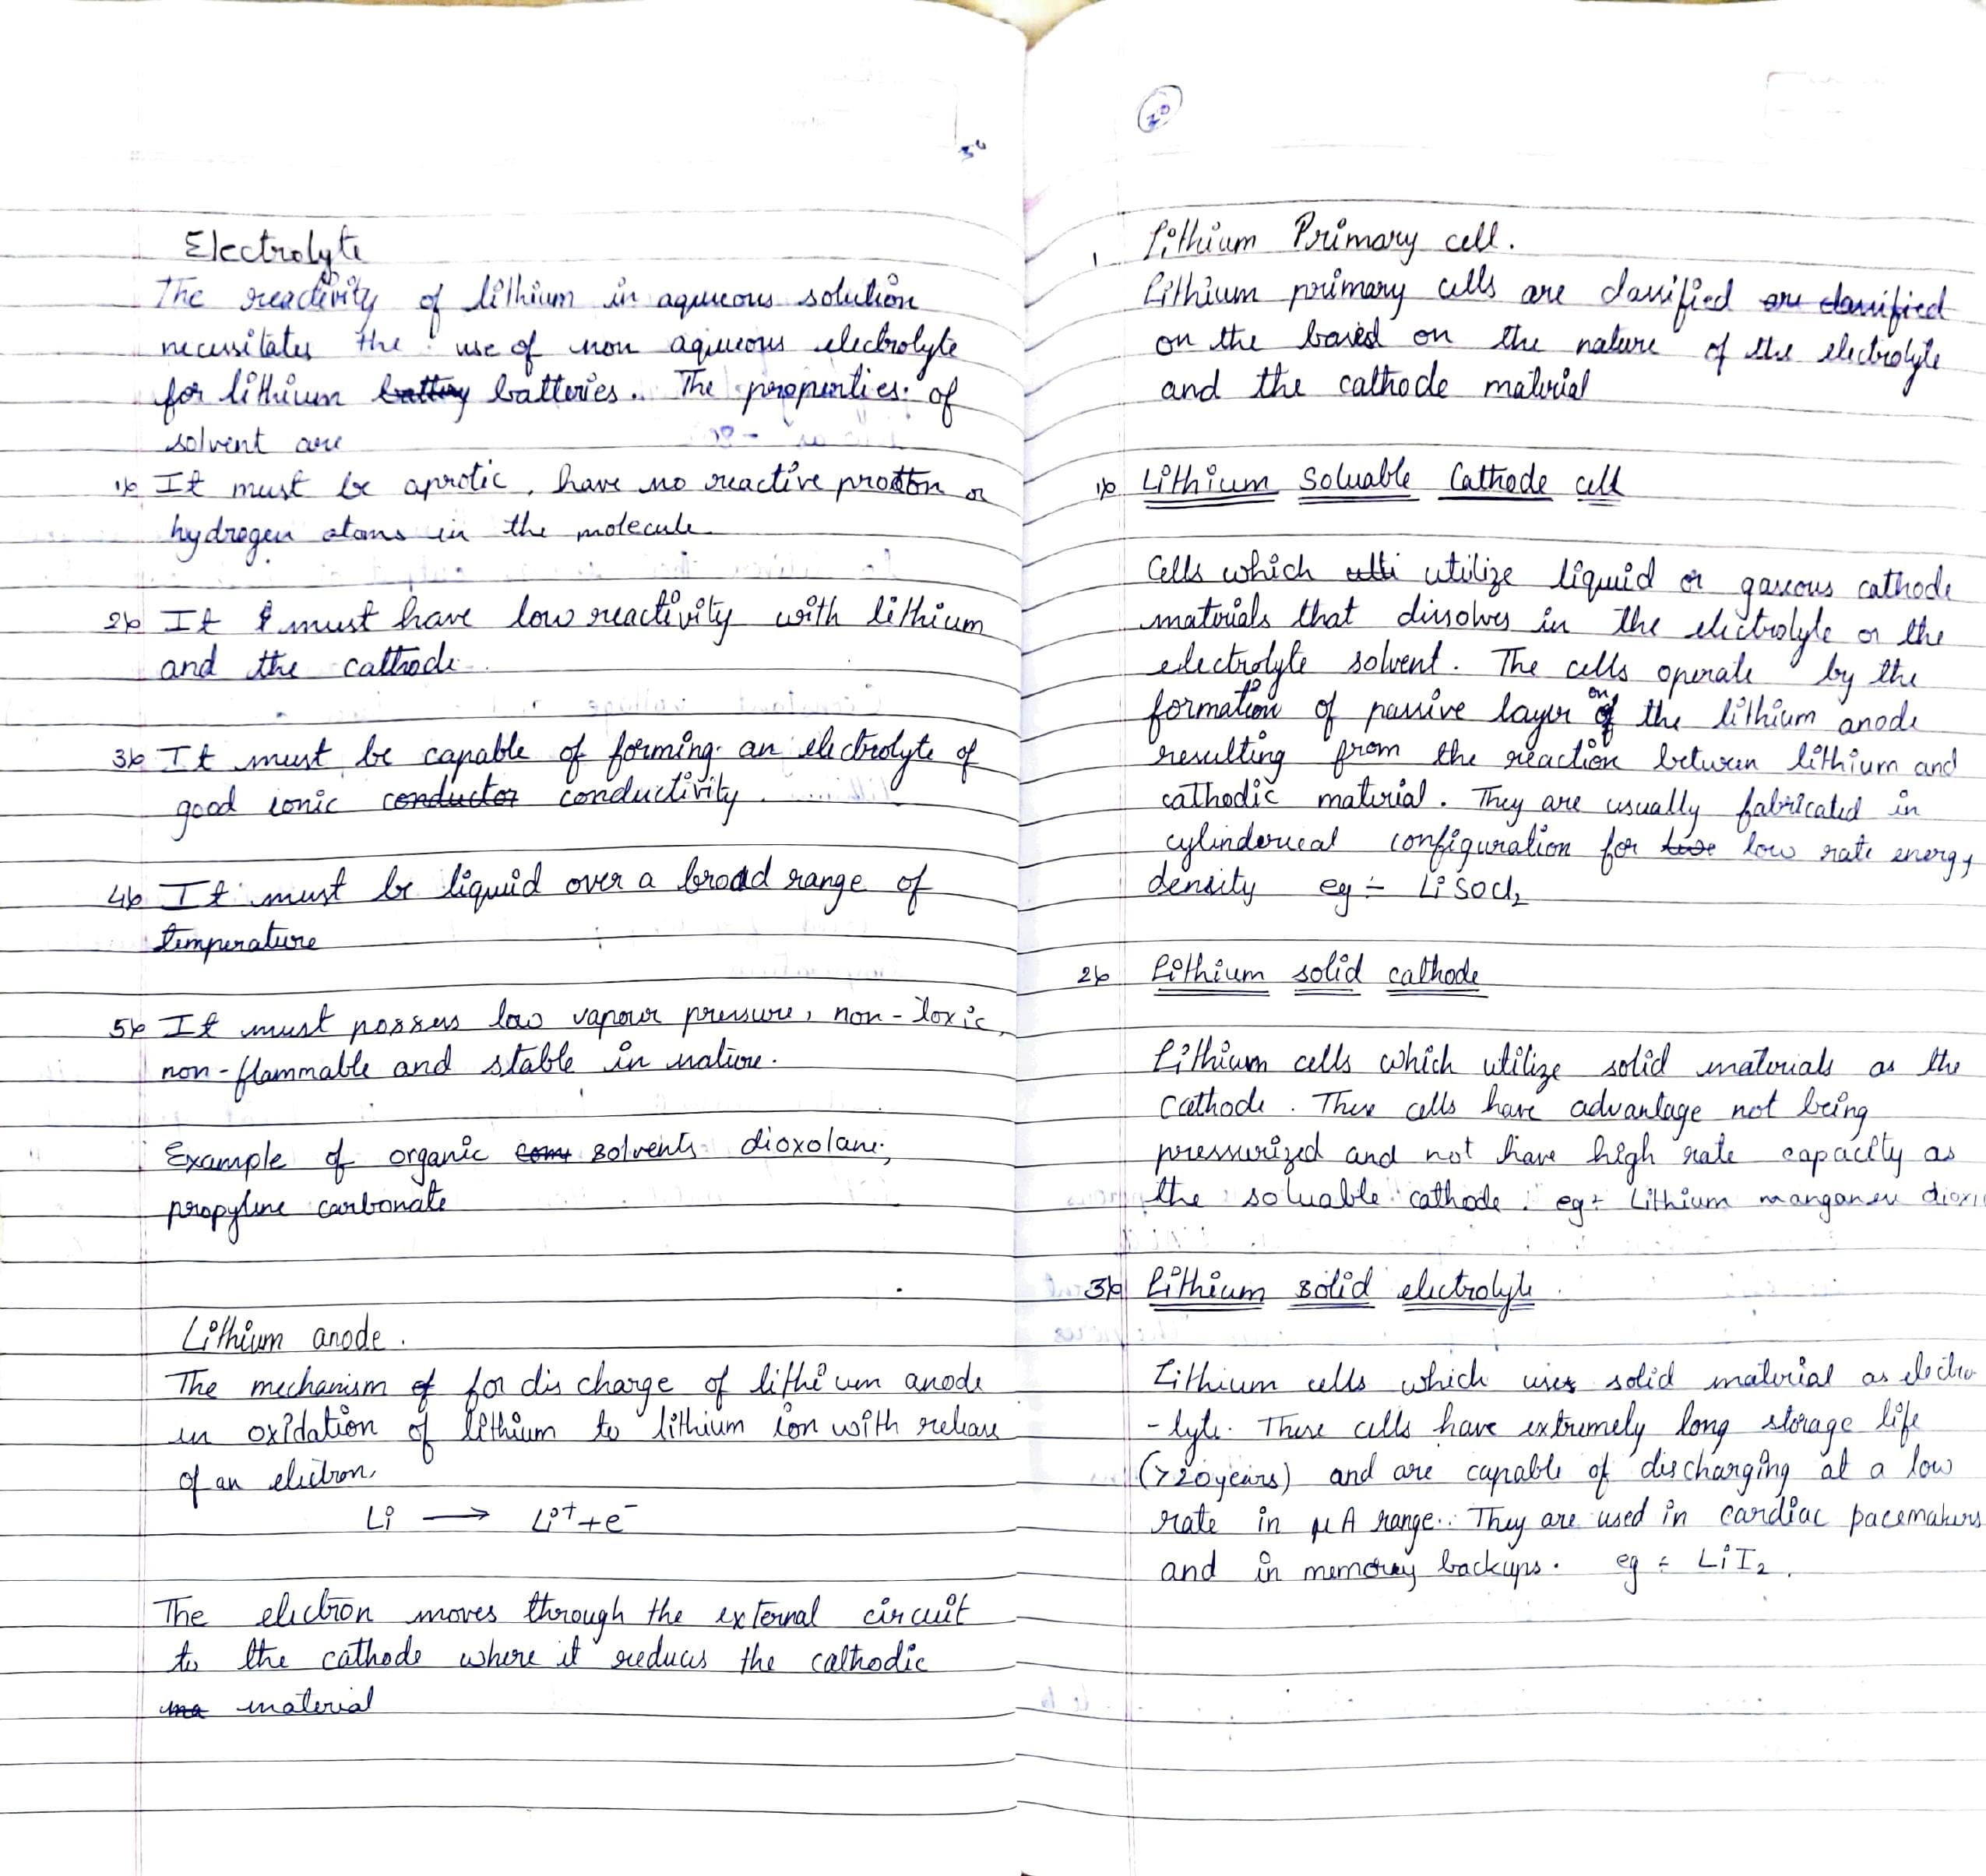 Electrolyte
The reactivity of lithium in aqueous solution
necessitates the use of non aqueous electrolyte
for lithium battery batteries. The properties of
solvent are
1) It must be aprotic, have no reactive protton or
hydrogen atoms in the molecule
2) It must have low reactivity with lithium
and the cathode.
3) It must be capable of forming an electrolyte of
good ionic conductor conductivity.
4) It must be liquid over a broad range of
temperature
5) It must possess low vapour pressure, non-toxic,
non-flammable and stable in nature.
Example of organic com solvents dioxolane,
propylene carbonate
Lithium anode.
The mechanism of for discharge of lithium anode
in oxidation of lithium to lithium ion with release
of an electron,
Li → Li⁺+e⁻
The electron moves through the external circuit
to the cathode where it reduces the cathodic
ma material
30
1 Lithium Primary cell.
Lithium primary cells are classified are classified
on the based on the nature of the electrolyte
and the cathode material
1) Lithium soluable Cathode cell
Cells which utli utilize liquid or gaseous cathode
materials that dissolves in the electrolyte or the
electrolyte solvent. The cells operate by the
formation of passive layer of on the lithium anode
resulting from the reaction between lithium and
cathodic material. They are usually fabricated in
cylinderical configuration for low rate energy
density eg ÷ LiSOCl₂
2) Lithium solid cathode
Lithium cells which utilize solid materials as the
cathode. These cells have advantage not being
pressurized and not have high rate capacity as
the soluable cathode. eg ÷ Lithium manganese dioxi
3) Lithium solid electrolyte
Lithium cells which uses solid material as electro
-lyte. These cells have extremely long storage life
(>20years) and are capable of discharging at a low
rate in μA range. They are used in cardiac pacemakers
and in memory backups. eg ÷ LiI₂.